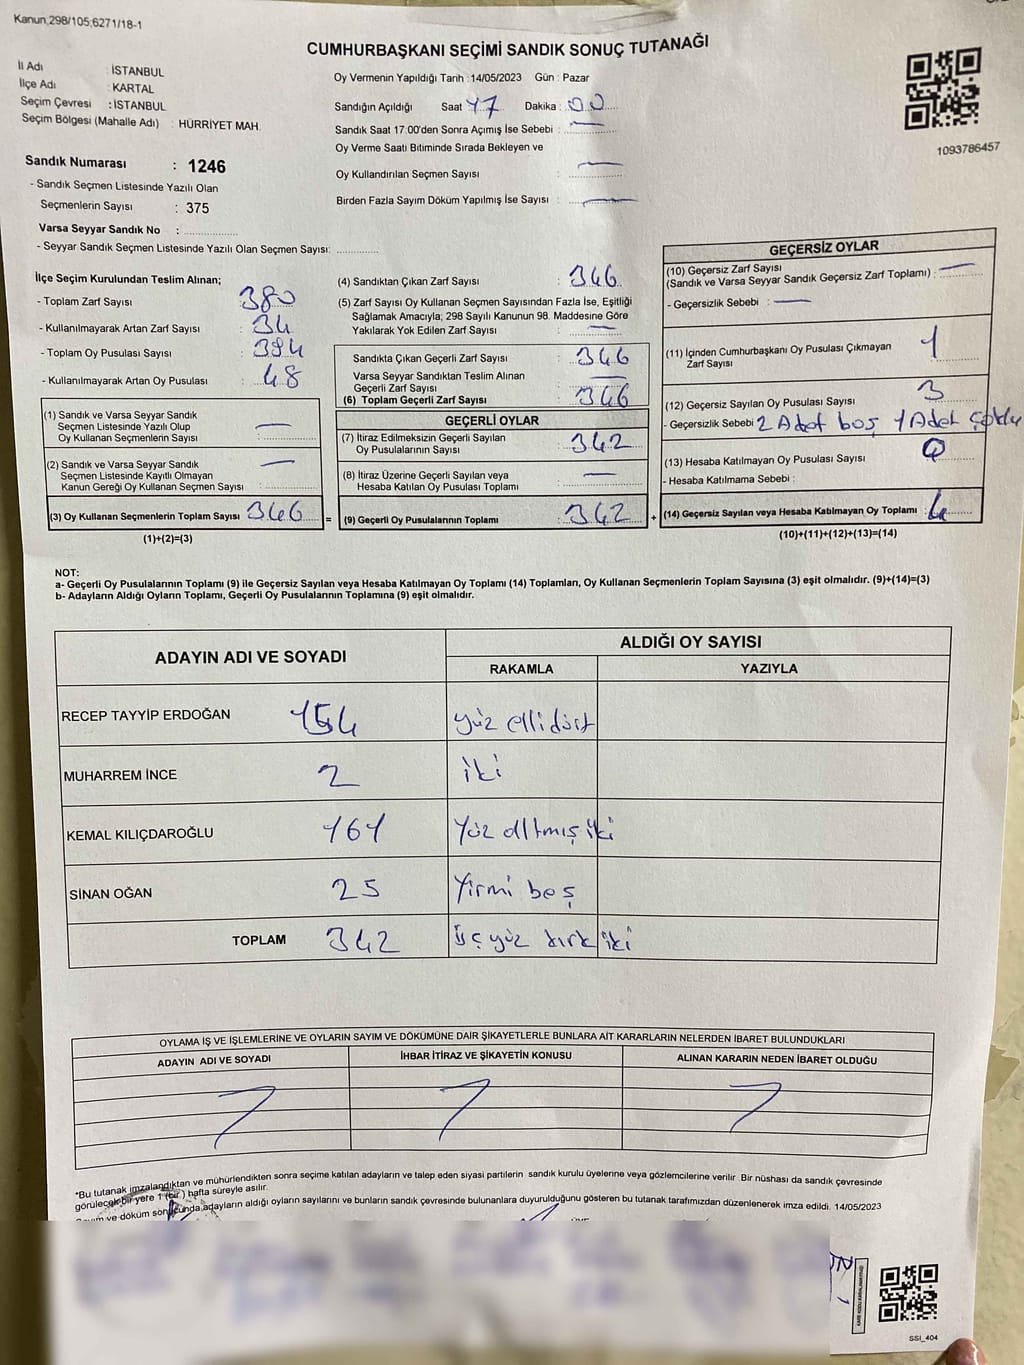 Kanun,298/105,6271/18-1
CUMHURBAŞKANI SEÇİMİ SANDIK SONUÇ TUTANAĞI
İl Adı : İSTANBUL
İlçe Adı : KARTAL
Seçim Çevresi : İSTANBUL
Seçim Bölgesi (Mahalle Adı) : HÜRRİYET MAH.
Sandık Numarası : 1246
- Sandık Seçmen Listesinde Yazılı Olan
Seçmenlerin Sayısı : 375
Varsa Seyyar Sandık No :
- Seyyar Sandık Seçmen Listesinde Yazılı Olan Seçmen Sayısı:
Oy Vermenin Yapıldığı Tarih : 14/05/2023 Gün : Pazar
Sandığın Açıldığı Saat 17 Dakika : 00
Sandık Saat 17:00'den Sonra Açımış İse Sebebi : —
Oy Verme Saati Bitiminde Sırada Bekleyen ve
Oy Kullandırılan Seçmen Sayısı : —
Birden Fazla Sayım Döküm Yapılmış İse Sayısı : —
1093786457
İlçe Seçim Kurulundan Teslim Alınan;
- Toplam Zarf Sayısı : 380
- Kullanılmayarak Artan Zarf Sayısı : 34
- Toplam Oy Pusulası Sayısı : 394
- Kullanılmayarak Artan Oy Pusulası : 48
(1) Sandık ve Varsa Seyyar Sandık
Seçmen Listesinde Yazılı Olup
Oy Kullanan Seçmenlerin Sayısı : —
(2) Sandık ve Varsa Seyyar Sandık
Seçmen Listesinde Kayıtlı Olmayan
Kanun Gereği Oy Kullanan Seçmen Sayısı : —
(3) Oy Kullanan Seçmenlerin Toplam Sayısı : 346
(1)+(2)=(3)
(4) Sandıktan Çıkan Zarf Sayısı : 346
(5) Zarf Sayısı Oy Kullanan Seçmen Sayısından Fazla İse, Eşitliği
Sağlamak Amacıyla; 298 Sayılı Kanunun 98. Maddesine Göre
Yakılarak Yok Edilen Zarf Sayısı : —
Sandıkta Çıkan Geçerli Zarf Sayısı : 346
Varsa Seyyar Sandıktan Teslim Alınan
Geçerli Zarf Sayısı : —
(6) Toplam Geçerli Zarf Sayısı : 346
GEÇERLİ OYLAR
(7) İtiraz Edilmeksizin Geçerli Sayılan
Oy Pusulalarının Sayısı : 342
(8) İtiraz Üzerine Geçerli Sayılan veya
Hesaba Katılan Oy Pusulası Toplamı : —
= (9) Geçerli Oy Pusulalarının Toplamı : 342 +
GEÇERSİZ OYLAR
(10) Geçersiz Zarf Sayısı
(Sandık ve Varsa Seyyar Sandık Geçersiz Zarf Toplamı) : —
- Geçersizlik Sebebi : —
(11) İçinden Cumhurbaşkanı Oy Pusulası Çıkmayan
Zarf Sayısı : 1
(12) Geçersiz Sayılan Oy Pusulası Sayısı : 3
- Geçersizlik Sebebi 2 Adet boş 1 Adet çoklu
(13) Hesaba Katılmayan Oy Pusulası Sayısı : 0
- Hesaba Katılmama Sebebi :
(14) Geçersiz Sayılan veya Hesaba Katılmayan Oy Toplamı : 4
(10)+(11)+(12)+(13)=(14)
NOT:
a- Geçerli Oy Pusulalarının Toplamı (9) ile Geçersiz Sayılan veya Hesaba Katılmayan Oy Toplamı (14) Toplamları, Oy Kullanan Seçmenlerin Toplam Sayısına (3) eşit olmalıdır. (9)+(14)=(3)
b- Adayların Aldığı Oyların Toplamı, Geçerli Oy Pusulalarının Toplamına (9) eşit olmalıdır.
ADAYIN ADI VE SOYADI ALDIĞI OY SAYISI
RAKAMLA YAZIYLA
RECEP TAYYİP ERDOĞAN 154 yüz ellidört
MUHARREM İNCE 2 iki
KEMAL KILIÇDAROĞLU 161 Yüz altmış iki
SİNAN OĞAN 25 Yirmi beş
TOPLAM 342 üç yüz kırk iki
OYLAMA İŞ VE İŞLEMLERİNE VE OYLARIN SAYIM VE DÖKÜMÜNE DAİR ŞİKAYETLERLE BUNLARA AİT KARARLARIN NELERDEN İBARET BULUNDUKLARI
ADAYIN ADI VE SOYADI İHBAR İTİRAZ VE ŞİKAYETİN KONUSU ALINAN KARARIN NEDEN İBARET OLDUĞU
*Bu tutanak imzalandıktan ve mühürlendikten sonra seçime katılan adayların ve talep eden siyasi partilerin sandık kurulu üyelerine veya gözlemcilerine verilir. Bir nüshası da sandık çevresinde
görülecek bir yere 1 (bir) hafta süreyle asılır.
ve döküm sonucunda adayların aldığı oyların sayılarını ve bunların sandık çevresinde bulunanlara duyurulduğunu gösteren bu tutanak tarafımızdan düzenlenerek imza edildi. 14/05/2023
SSI_404